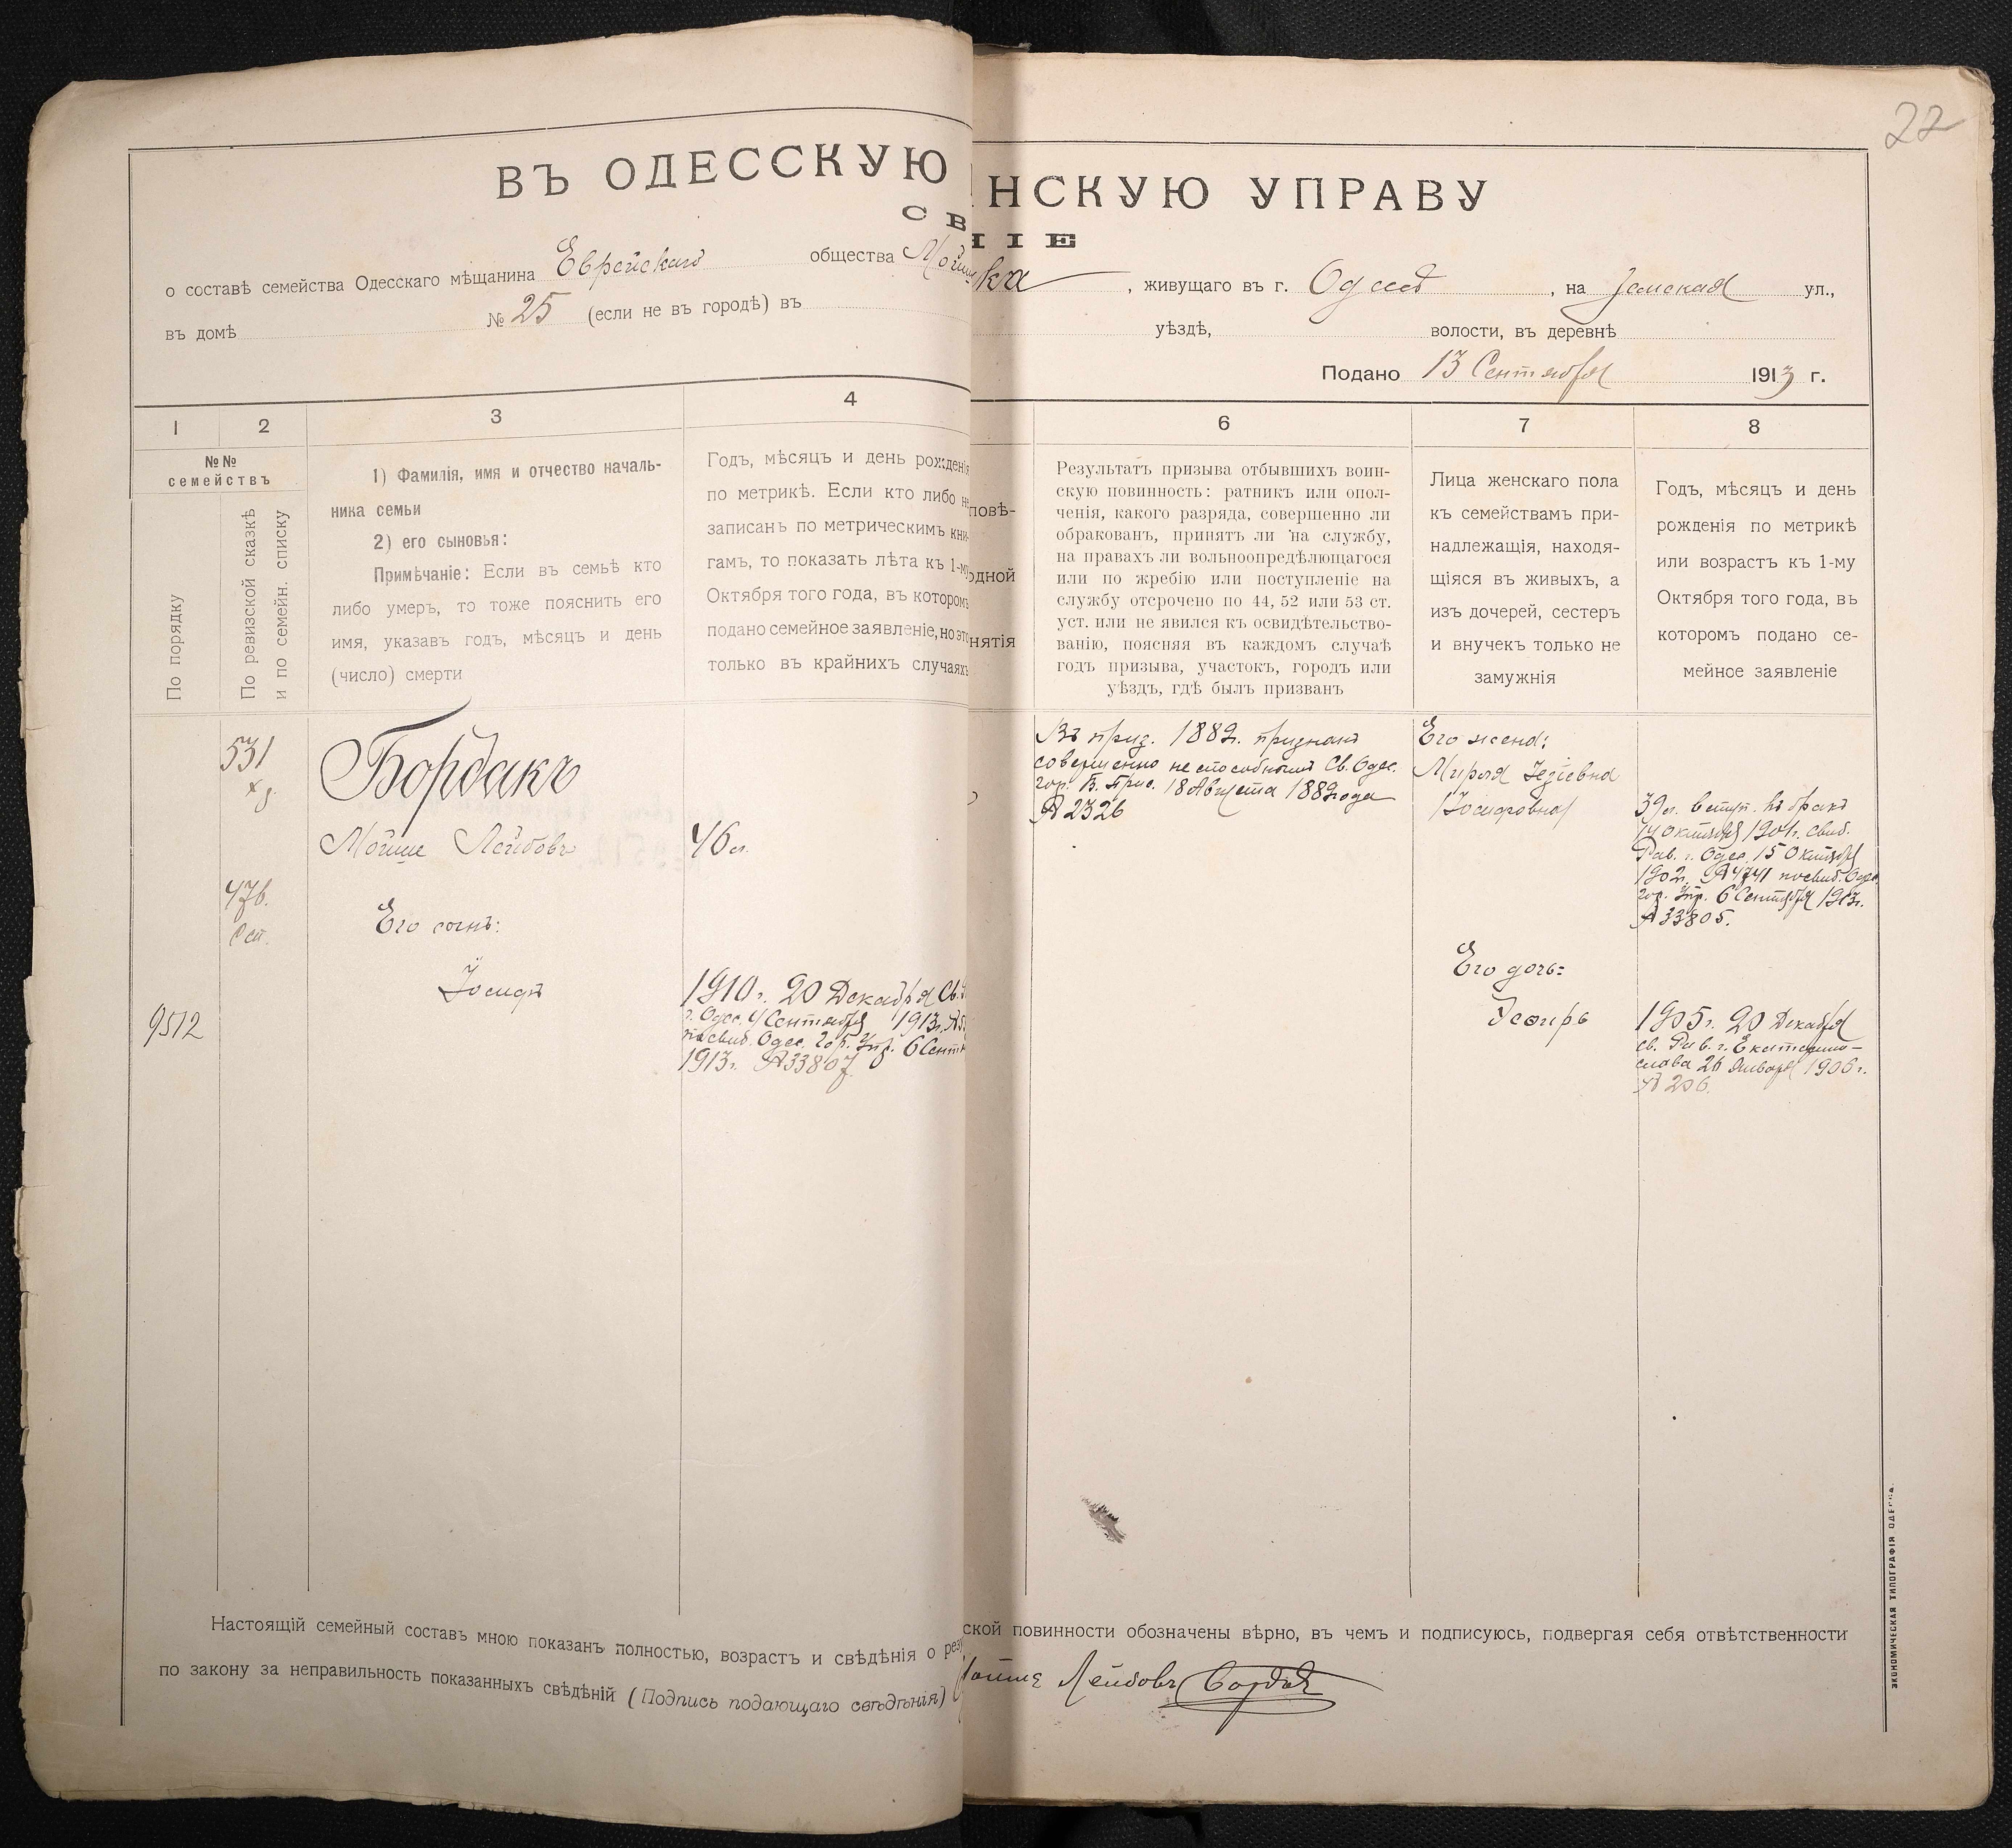 22
ВЪ ОДЕССКУЮ НСКУЮ УПРАВУ
СВ
НІЕ
о составѣ семейства Одесскаго мѣщанина Еврейскаго общества Мойшка , живущаго въ г. Одессѣ , на Земская ул.,
въ домѣ № 25 (если не въ городѣ) въ уѣздѣ, волости, въ деревнѣ
Подано 13 Сентября 1913 г.
1
2
3
4
6
7
8
№№
семействъ
По порядку
По ревизской сказкѣ
и по семейн. списку
1) Фамилія, имя и отчество началь-
ника семьи
2) его сыновья:
Примѣчаніе: Если въ семьѣ кто
либо умеръ, то тоже пояснить его
имя, указавъ годъ, мѣсяцъ и день
(число) смерти
Годъ, мѣсяцъ и день рожденія
по метрикѣ. Если кто либо не
записанъ по метрическимъ кни-
гамъ, то показать лѣта къ 1-му
Октября того года, въ которомъ
подано семейное заявленіе, но это
только въ крайнихъ случаяхъ
повѣ-
одной
нятія
Результатъ призыва отбывшихъ воин-
скую повинность: ратникъ или опол-
ченія, какого разряда, совершенно ли
обракованъ, принятъ ли на службу,
на правахъ ли вольноопредѣляющагося
или по жребію или поступленіе на
службу отсрочено по 44, 52 или 53 ст.
уст. или не явился къ освидѣтельство-
ванію, поясняя въ каждомъ случаѣ
годъ призыва, участокъ, городъ или
уѣздъ, гдѣ былъ призванъ
Лица женскаго пола
къ семействамъ при-
надлежащія, находя-
щіяся въ живыхъ, а
изъ дочерей, сестеръ
и внучекъ только не
замужнія
Годъ, мѣсяцъ и день
рожденія по метрикѣ
или возрастъ къ 1-му
Октября того года, въ
которомъ подано се-
мейное заявленіе
9512
531
476.
Бордакъ
Мойше Лейбовъ
Его сынъ:
Іосифъ
46 л.
1910 г. 20 Декабря Св.
г. Одес. 4 Сентября 1913 г. №
посвид. Одес. гор. Упр. 6 Сент
1913 г. №33807
Въ приз. 1889г. признанъ
совершенно неспособнымъ Св. Одес.
гор. В. Прис. 18 Августа 1889 года
№ 2326
Его жена:
Мирля
Іосифовна
Его дочь:
Эсѳирь
39 л. вступ. въ бракъ
14 Октября 1901г. свид.
Рав. г. Одес. 15 Октября
1902г. №4741 посвид. Одес.
гор. Упр. 6 Сентября 1913г.
№33805.
1905г. 20 Декабря
св. Рав. г. Екатерино-
слава 26 Января 1906 г.
№ 206.
Настоящій семейный составъ мною показанъ полностью, возрастъ и свѣдѣнія о резу ской повинности обозначены вѣрно, въ чемъ и подписуюсь, подвергая себя отвѣтственности
по закону за неправильность показанныхъ свѣдѣній (Подпись подающаго свѣдѣнія) Мойше Лейбовъ Бордакъ
ЭКОНОМИЧЕСКАЯ ТИПОГРАФІЯ ОДЕССА.